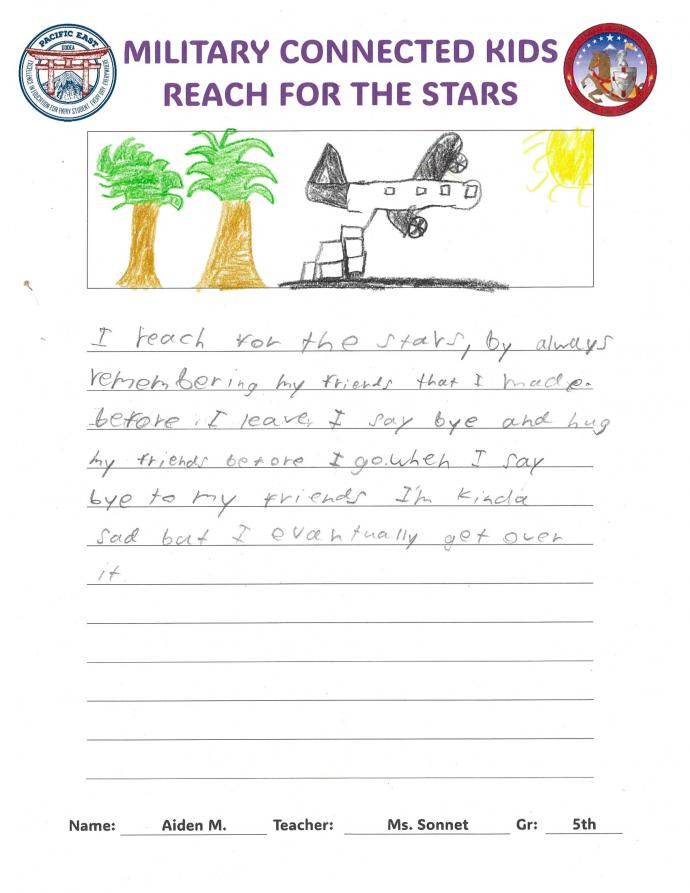 PACIFIC EAST
DODEA
EXCELLENCE IN EDUCATION FOR EVERY STUDENT, EVERY DAY, EVERYWHERE
MILITARY CONNECTED KIDS
REACH FOR THE STARS
I reach for the stars, by always
remembering my friends that I made.
before. I leave, I say bye and hug
my friends before I go. when I say
bye to my friends I'm kinda
sad but I evantually get over
it
Name: Aiden M. Teacher: Ms. Sonnet Gr: 5th